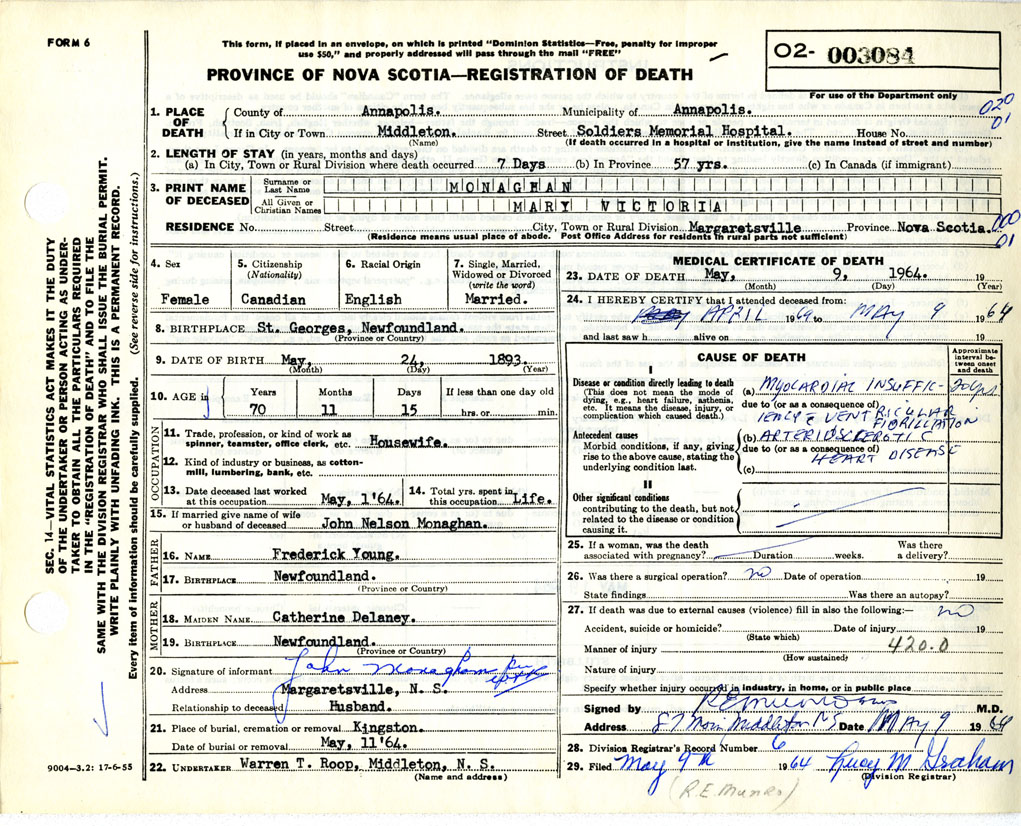 FORM 6
This form, if placed in an envelope, on which is printed "Dominion Statistics—Free, penalty for improper
use $50," and properly addressed will pass through the mail "FREE"
PROVINCE OF NOVA SCOTIA—REGISTRATION OF DEATH
02- 003084
For use of the Department only
020
01
1. PLACE OF DEATH
County of Annapolis. Municipality of Annapolis.
If in City or Town Middleton. Street Soldiers Memorial Hospital. House No.
(Name) (If death occurred in a hospital or institution, give the name instead of street and number)
2. LENGTH OF STAY (in years, months and days)
(a) In City, Town or Rural Division where death occurred 7 Days (b) In Province 57 yrs. (c) In Canada (if immigrant)
3. PRINT NAME OF DECEASED
Surname or Last Name MONAGHAN
All Given or Christian Names MARY VICTORIA
000
01
RESIDENCE No. Street City, Town or Rural Division Margaretsville Province Nova Scotia.
(Residence means usual place of abode. Post Office Address for residents in rural parts not sufficient)
4. Sex
Female
5. Citizenship
(Nationality)
Canadian
6. Racial Origin
English
7. Single, Married,
Widowed or Divorced
(write the word)
Married.
8. BIRTHPLACE St. Georges, Newfoundland.
(Province or Country)
9. DATE OF BIRTH May, 24, 1893.
(Month) (Day) (Year)
10. AGE in
Years Months Days If less than one day old
70 11 15 hrs. or min.
OCCUPATION
11. Trade, profession, or kind of work as
spinner, teamster, office clerk, etc. Housewife.
12. Kind of industry or business, as cotton-
mill, lumbering, bank, etc.
13. Date deceased last worked
at this occupation May, 1'64.
14. Total yrs. spent in
this occupation Life.
15. If married give name of wife
or husband of deceased John Nelson Monaghan.
FATHER
16. NAME Frederick Young.
17. BIRTHPLACE Newfoundland.
(Province or Country)
MOTHER
18. MAIDEN NAME Catherine Delaney.
19. BIRTHPLACE Newfoundland.
(Province or Country)
20. Signature of informant John Monaghan per
Address Margaretsville, N. S.
Relationship to deceased Husband.
21. Place of burial, cremation or removal Kingston.
Date of burial or removal May, 11'64.
22. UNDERTAKER Warren T. Roop, Middleton, N. S.
(Name and address)
MEDICAL CERTIFICATE OF DEATH
23. DATE OF DEATH May, 9, 1964. 19
(Month) (Day) (Year)
24. I HEREBY CERTIFY that I attended deceased from:
APRIL 1964 to MAY 9 1964
and last saw h alive on 19
CAUSE OF DEATH
Approximate interval between onset and death
I
Disease or condition directly leading to death
(This does not mean the mode of
dying, e.g., heart failure, asthenia,
etc. It means the disease, injury, or
complication which caused death.)
(a) MYOCARDIAL INSUFFIC-
due to (or as a consequence of)
IENCY c VENTRICULAR
FIBRILLATION
Antecedent causes
Morbid conditions, if any, giving
rise to the above cause, stating the
underlying condition last.
(b) ARTERIOSCLEROTIC
due to (or as a consequence of)
HEART DISEASE
(c)
II
Other significant conditions
contributing to the death, but not
related to the disease or condition
causing it.
25. If a woman, was the death Was there
associated with pregnancy? Duration weeks. a delivery?
26. Was there a surgical operation? no Date of operation 19
State findings Was there an autopsy?
27. If death was due to external causes (violence) fill in also the following:— no
Accident, suicide or homicide? Date of injury 19
(State which)
Manner of injury 420.0
(How sustained)
Nature of injury
Specify whether injury occurred in industry, in home, or in public place
Signed by M.D.
Address 87 Main Middleton NS Date MAY 9 1964
28. Division Registrar's Record Number 6
29. Filed May 9th 1964 Lucy M Graham
(Division Registrar)
(R.E. Munro)
SEC. 14—VITAL STATISTICS ACT MAKES IT THE DUTY
OF THE UNDERTAKER OR PERSON ACTING AS UNDER-
TAKER TO OBTAIN ALL THE PARTICULARS REQUIRED
IN THE "REGISTRATION OF DEATH" AND TO FILE THE
SAME WITH THE DIVISION REGISTRAR WHO SHALL ISSUE THE BURIAL PERMIT.
WRITE PLAINLY WITH UNFADING INK. THIS IS A PERMANENT RECORD.
Every item of information should be carefully supplied. (See reverse side for instructions.)
9004—3.2: 17-6-55